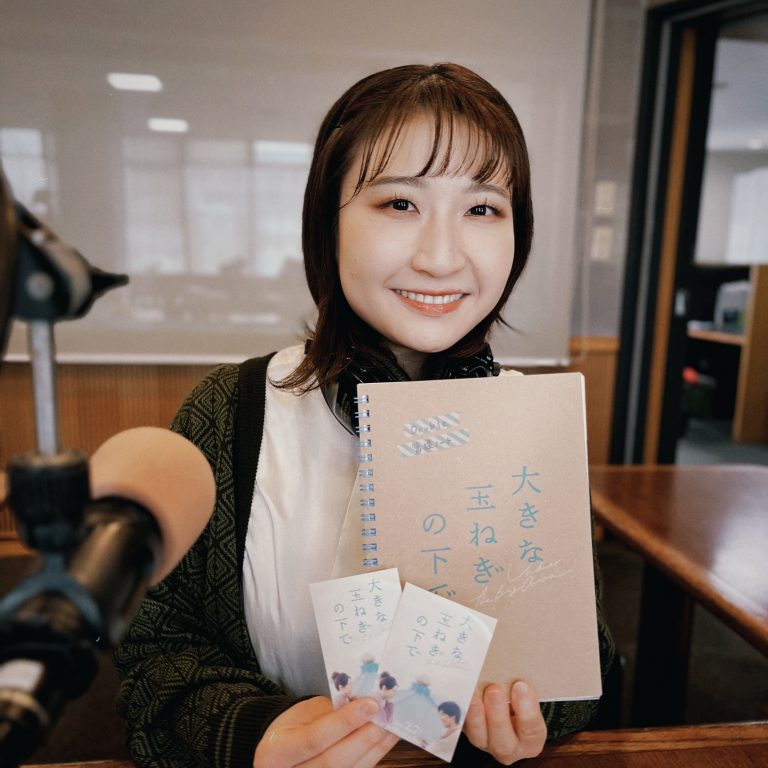 Double
大きな
玉ねぎ
の下で
大きな
玉ねぎ
の下で
大きな
玉ねぎ
の下で